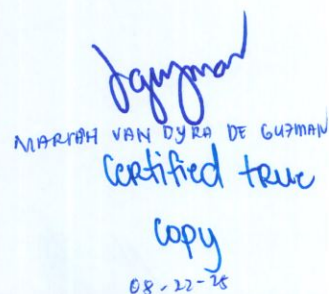 MARIAH VAN DYRA DE GUZMAN
Certified true
copy
08-22-25